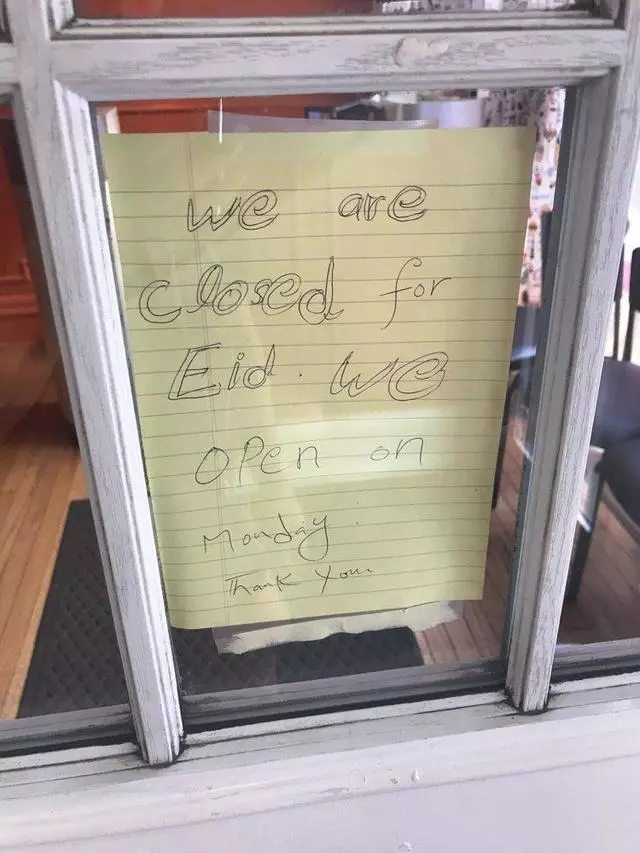 we are
closed for
Eid. We
open on
Monday.
Thank You.